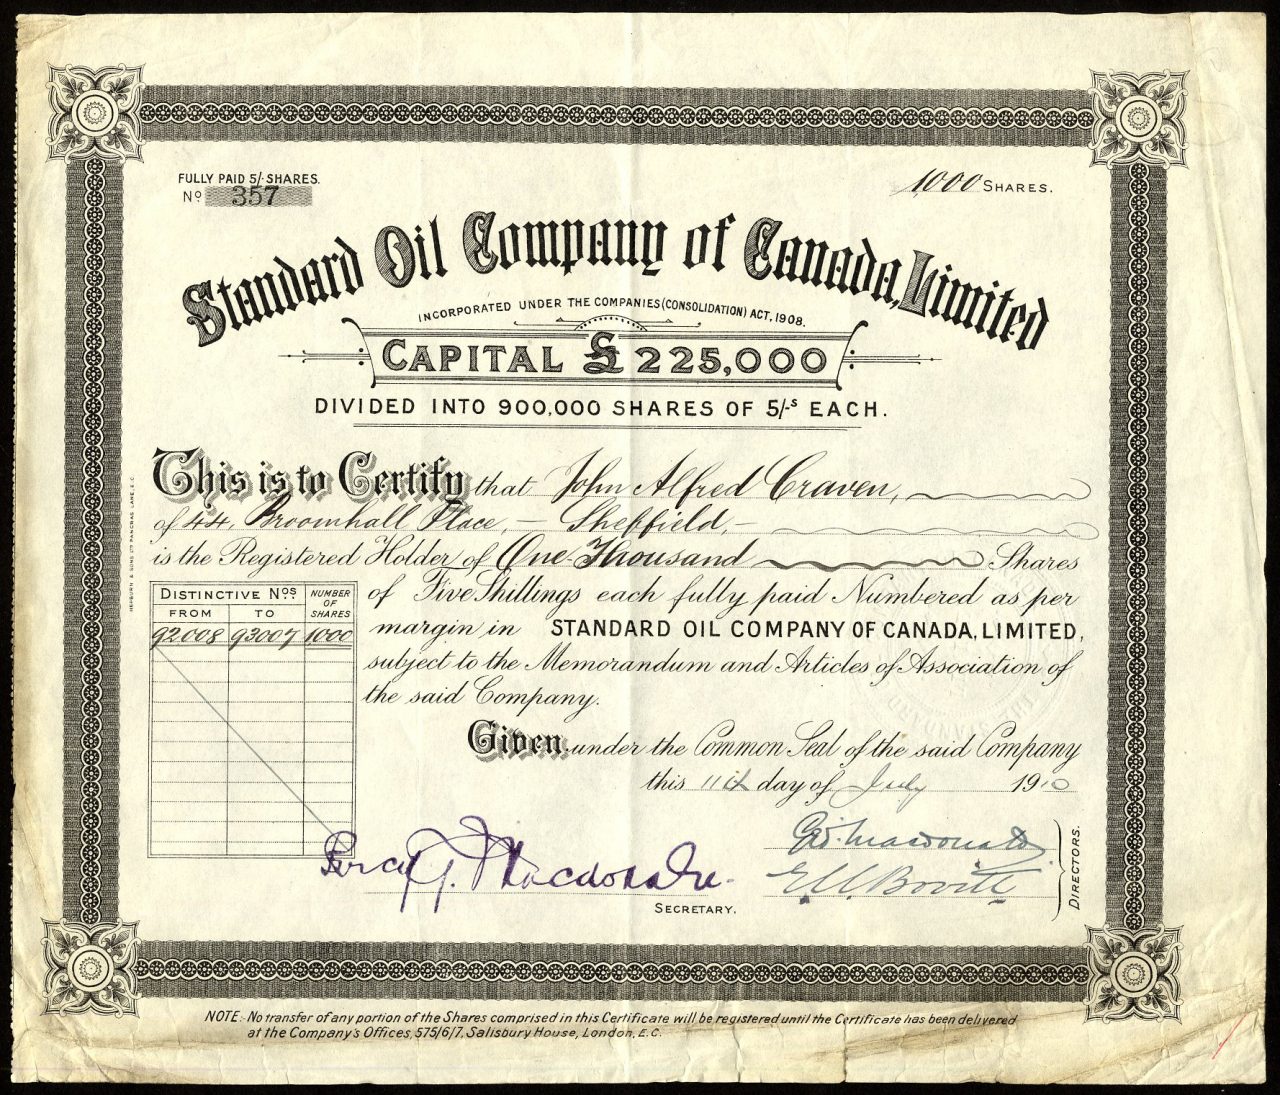 FULLY PAID 5/- SHARES.
No 357
1,000 SHARES.
Standard Oil Company of Canada, Limited
INCORPORATED UNDER THE COMPANIES (CONSOLIDATION) ACT, 1908.
CAPITAL £225,000
DIVIDED INTO 900,000 SHARES OF 5/-s EACH.
This is to Certify that John Alfred Craven,
of 44, Broomhall Place, - Sheffield, -
is the Registered Holder of One Thousand Shares
of Five Shillings each fully paid Numbered as per
margin in STANDARD OIL COMPANY OF CANADA, LIMITED,
subject to the Memorandum and Articles of Association of
the said Company.
DISTINCTIVE Nos. NUMBER OF SHARES
FROM TO
92008 93007 1,000
Given under the Common Seal of the said Company
this 11th day of July 1910
Percy G. Macdonald
SECRETARY.
Macdonald
E Bovill
DIRECTORS.
HEPBURN & SONS LTD PANCRAS LANE, E.C.
NOTE:- No transfer of any portion of the Shares comprised in this Certificate will be registered until the Certificate has been delivered
at the Company's Offices, 575/6/7, Salisbury House, London, E.C.